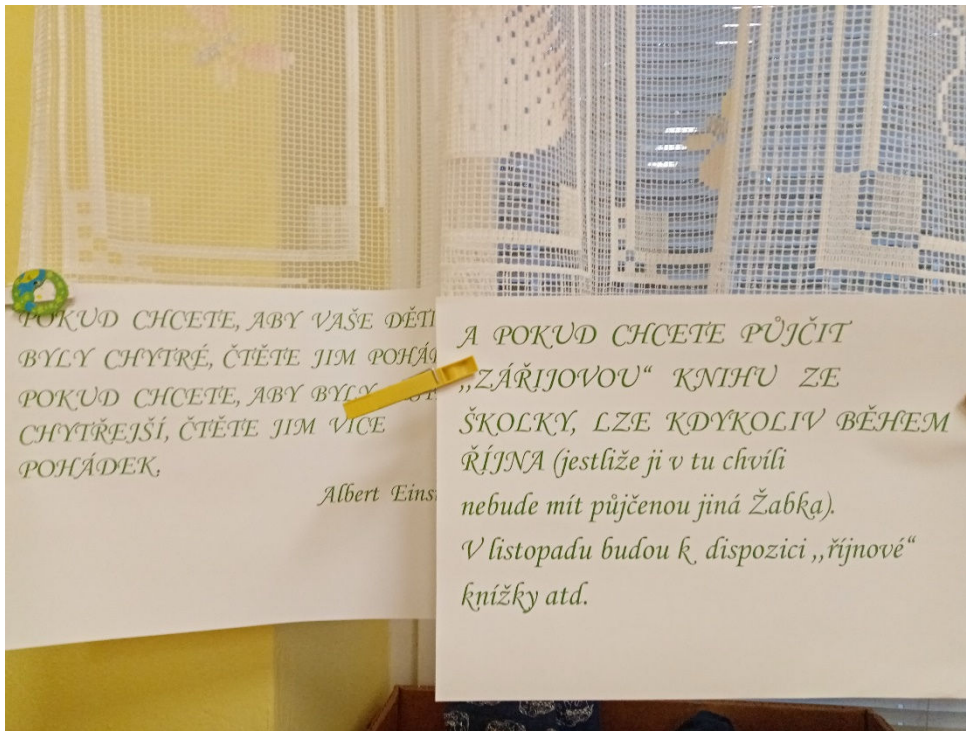 POKUD CHCETE, ABY VAŠE DĚTI
BYLY CHYTRÉ, ČTĚTE JIM
POKUD CHCETE, ABY BYLY
CHYTŘEJŠÍ, ČTĚTE JIM VÍCE
POHÁDEK.
Albert
A POKUD CHCETE PŮJČIT
,,ZÁŘIJOVOU“ KNIHU ZE
ŠKOLKY, LZE KDYKOLIV BĚHEM
ŘÍJNA (jestliže ji v tu chvíli
nebude mít půjčenou jiná Žabka).
V listopadu budou k dispozici ,,říjnové“
knížky atd.